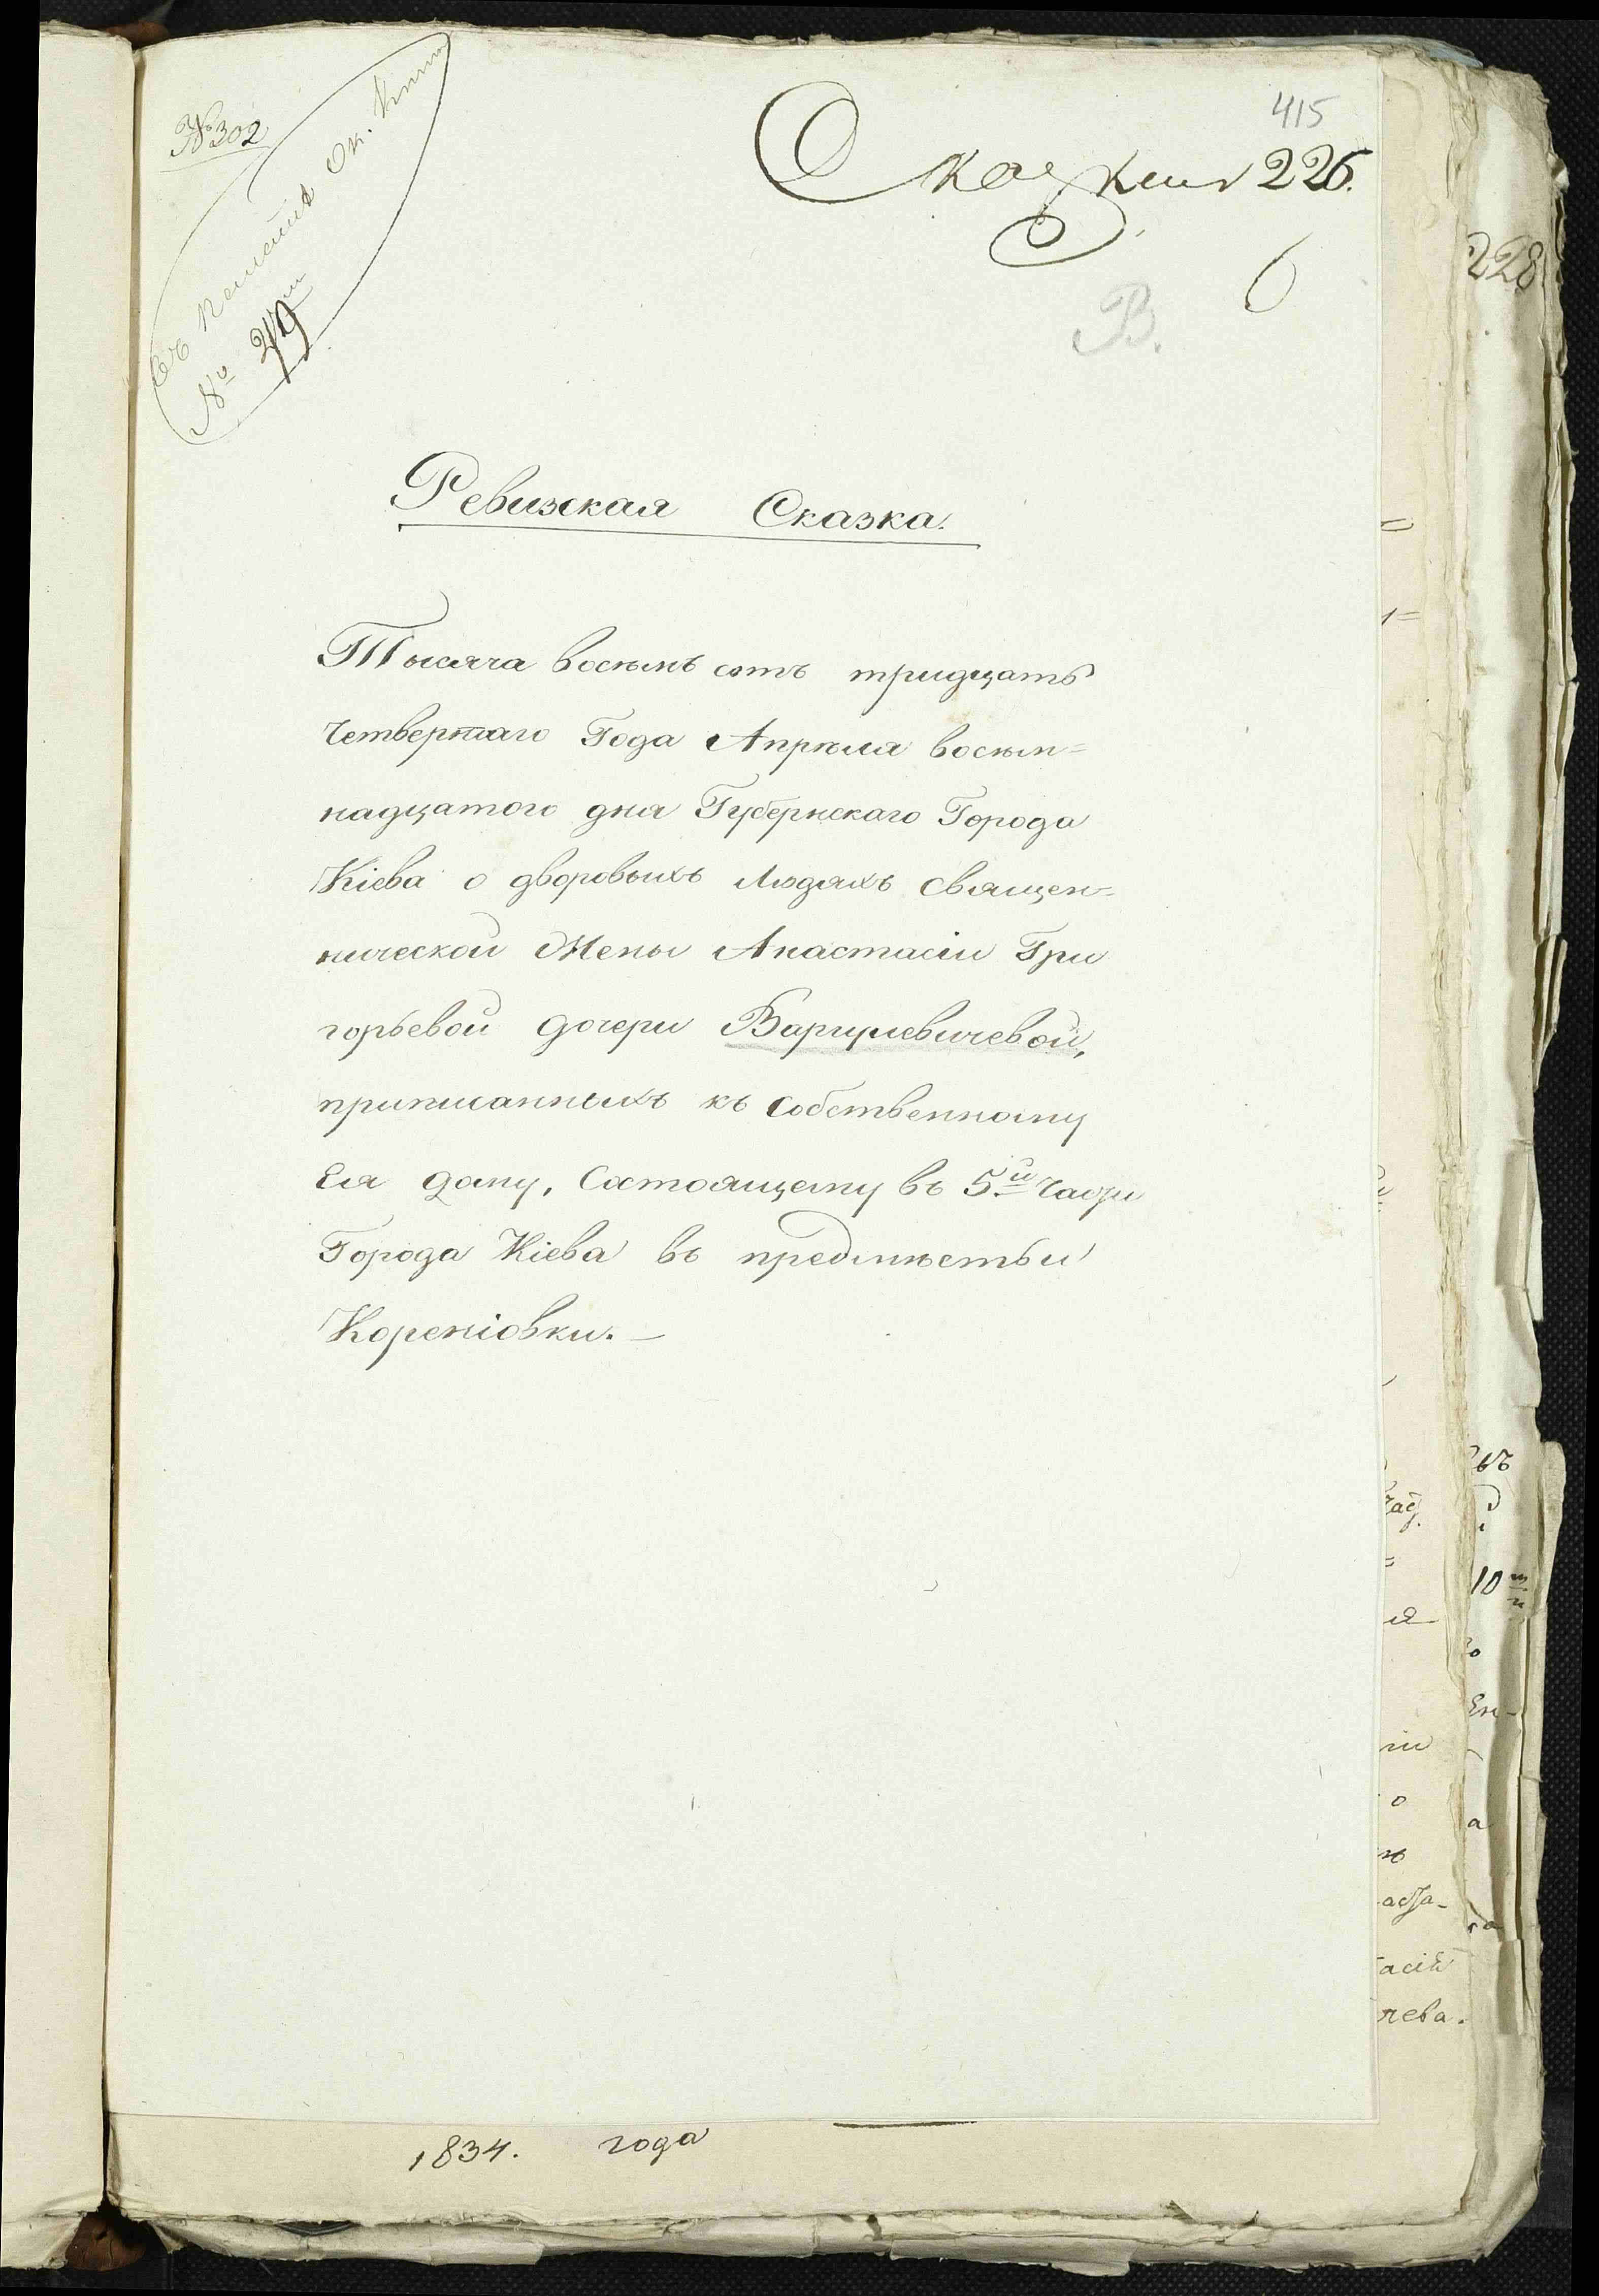 № 302
415
Сказки 226.
6
В.
№ 49
228
Ревизская Сказка.
Тысяча восемь сотъ тридцать
четвертаго Года Апрѣля восѣм=
надцатого дня Губернскаго Города
Кіева о дворовыхъ Людяхъ священ=
нической Жены Анастасіи Гри
горьевой дочери Варцилевичевой,
приписанныхъ къ собственному
Ея дому, Состоящему въ 5й части
Города Кіева въ предмѣстьи
Кореніовки. —
1834. года